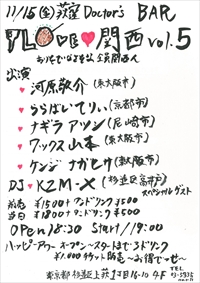 11/15(金)荻窪 Doctor's BAR
PLOVE♥関西 vol.5
出演
河原敬介 (東大阪市)
ららばいてりぃ (京都市)
ナギラ アツシ (尼崎市)
ワックス山本 (東大阪市)
ケンジ ナガセゆ (東大阪市)
DJ♥KZM-X (杉並区高井戸)
スペシャルゲスト
前売 ¥1500+ワンドリンク¥500
当日 ¥1800+ワンドリンク¥500
OPEN 18:30 Start/19:00
ハッピーアワー オープン~スタートまで3ドリンク
¥1,000チケット販売~お得でっせ~
東京都杉並区上荻1丁目16-10 4F
TEL